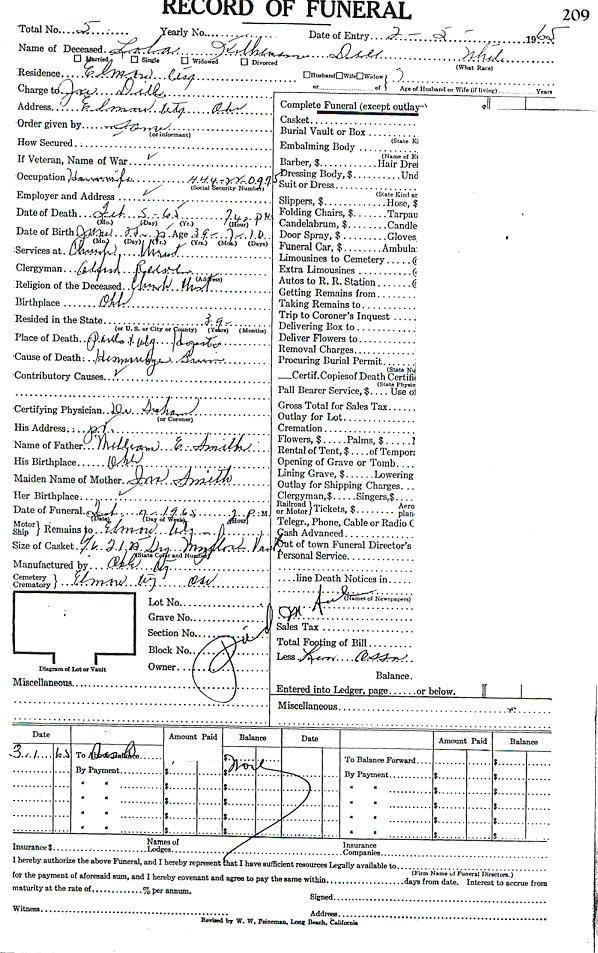 RECORD OF FUNERAL
209
Total No. 5 Yearly No. Date of Entry 2-5- 1965
Name of Deceased Dill White
Married Single Widowed Divorced (What Race)
Residence Elmore City Husband Wife Widow ?
or Age of Husband or Wife (if living) Years
Charge to Joe Dill
Address Elmore City Okla
Order given by Same
(or informant)
How Secured
If Veteran, Name of War
Occupation Housewife
(Social Security Number)
Employer and Address
Date of Death Feb 5-65 P.M.
(Mo.) (Day) (Yr.) (Hour)
Date of Birth Age 39-7-10
(Mo.) (Day) (Yr.) (Yrs.) (Mo.) (Days)
Services at Church
Clergyman
(Address)
Religion of the Deceased Church
Birthplace Okla
Resided in the State 39
(or U. S. or City or County) (Years) (Months)
Place of Death Hospital
Cause of Death Hemorrhage Brain
Contributory Causes
Certifying Physician Dr. Graham
(or Coroner)
His Address
Name of Father William E. Smith
His Birthplace Okla
Maiden Name of Mother Smith
Her Birthplace
Date of Funeral Feb 1965 2 P.M.
(Date) (Day of Week) (Hour)
Motor Ship Remains to Elmore City
Size of Casket 6/6
(State Color and Number)
Manufactured by Okla
Cemetery Crematory Elmore City Okla
Lot No.
Grave No.
Section No.
Block No.
Owner
Diagram of Lot or Vault
Miscellaneous
Complete Funeral (except outlay
Casket
Burial Vault or Box
(State K
Embalming Body
(Name of E
Barber, $ Hair Dre
Dressing Body, $ Und
Suit or Dress
(State Kind a
Slippers, $ Hose, $
Folding Chairs, $ Tarpau
Candelabrum, $ Candle
Door Spray, $ Gloves
Funeral Car, $ Ambula
Limousines to Cemetery @
Extra Limousines @
Autos to R. R. Station @
Getting Remains from
Taking Remains to
Trip to Coroner's Inquest
Delivering Box to
Deliver Flowers to
Removal Charges
Procuring Burial Permit
(State Nu
Certif. Copies of Death Certifi
(State Physic
Pall Bearer Service, $ Use of
Gross Total for Sales Tax
Outlay for Lot
Cremation
Flowers, $ Palms, $
Rental of Tent, $ of Tempor
Opening of Grave or Tomb
Lining Grave, $ Lowering
Outlay for Shipping Charges
Clergyman, $ Singers, $
Railroad or Motor Tickets, $ Aero plan
Telegr., Phone, Cable or Radio C
Cash Advanced
Out of town Funeral Director's
Personal Service
line Death Notices in
(Names of Newspapers)
Sales Tax
Total Footing of Bill
Less
Balance
Entered into Ledger, page or below.
Miscellaneous
Date Amount Paid Balance Date Amount Paid Balance
3 1 65 To Balance $ To Balance Forward $
By Payment $ $ By Payment $ $
" " $ $ " " $ $
" " $ $ " " $ $
" " $ $ " " $ $
" " $ $ " " $ $
Insurance $ Names of Lodges Insurance Companies
I hereby authorize the above Funeral, and I hereby represent that I have sufficient resources Legally available to
(Firm Name of Funeral Directors.)
for the payment of aforesaid sum, and I hereby covenant and agree to pay the same within days from date. Interest to accrue from
maturity at the rate of % per annum.
Signed
Witness Address
Revised by W. W. Feineman, Long Beach, California